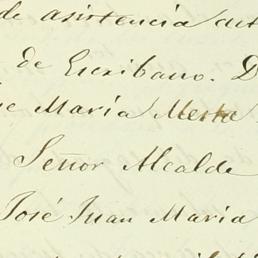 de asistencia del
de Escribano. D
María Mesta
Señor Alcalde
José Juan María